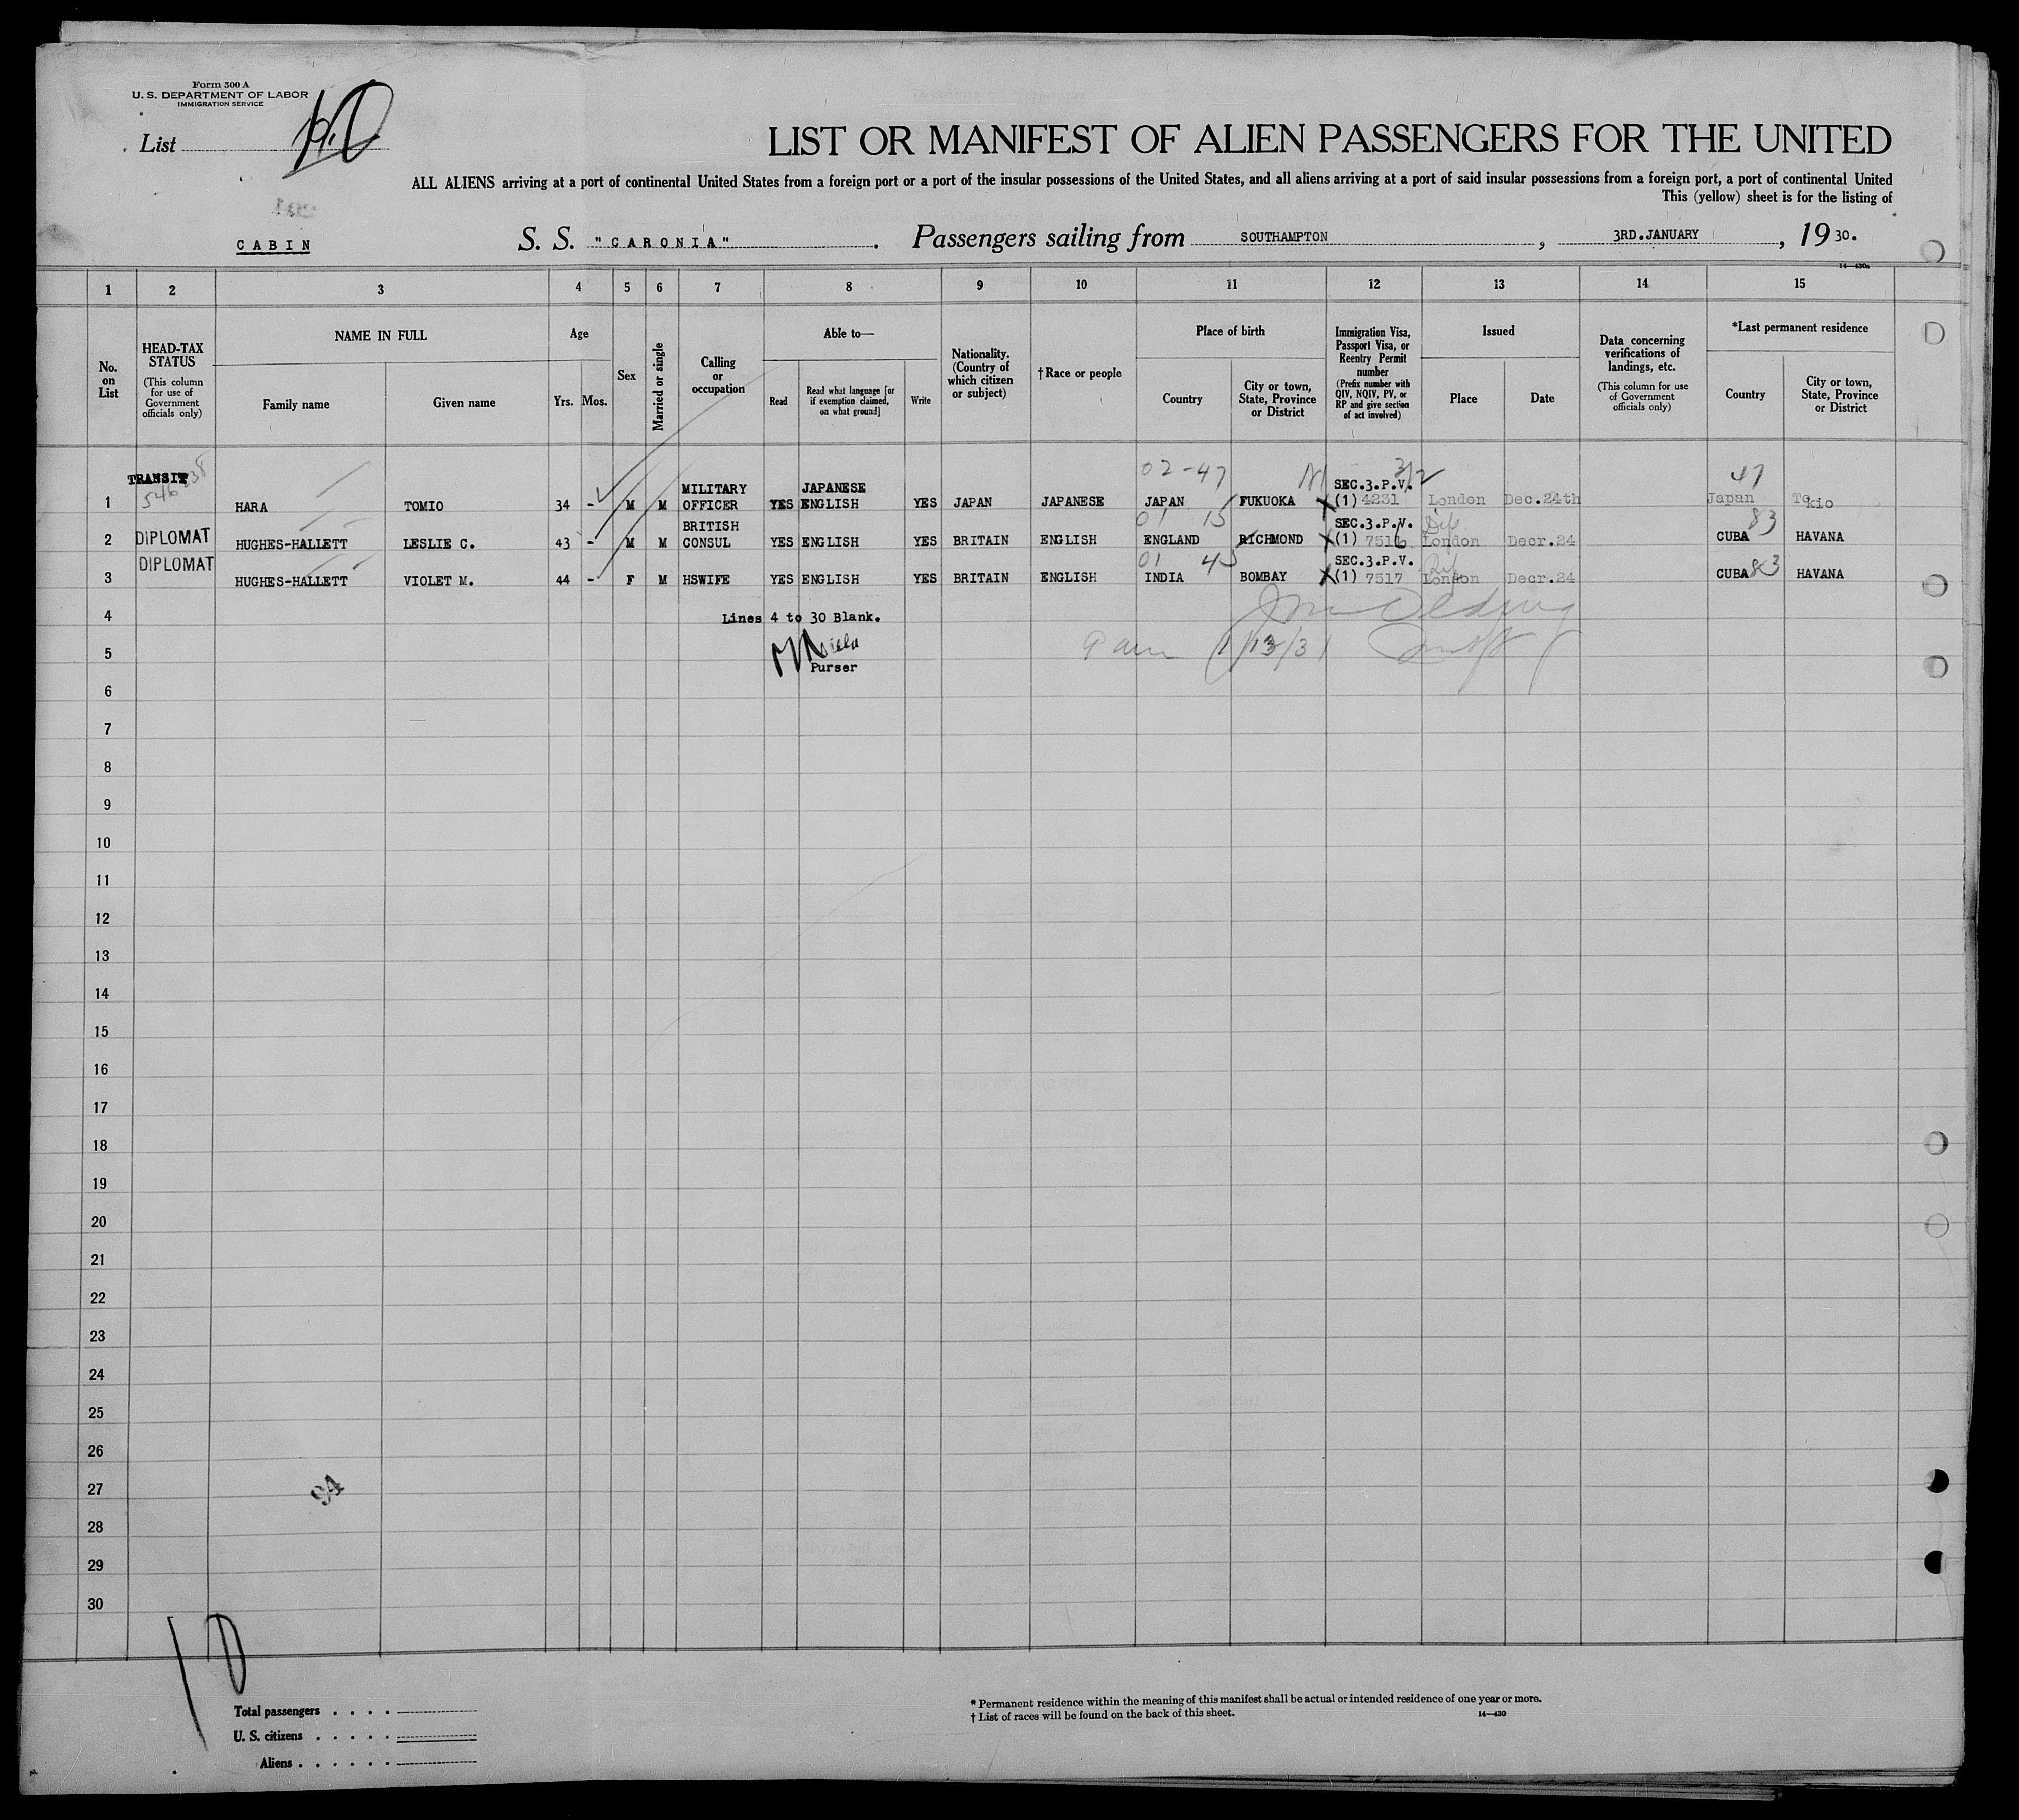 Form 500 A
U. S. DEPARTMENT OF LABOR
IMMIGRATION SERVICE
List
LIST OR MANIFEST OF ALIEN PASSENGERS FOR THE UNITED
ALL ALIENS arriving at a port of continental United States from a foreign port or a port of the insular possessions of the United States, and all aliens arriving at a port of said insular possessions from a foreign port, a port of continental United
This (yellow) sheet is for the listing of
CABIN S. S. "CARONIA" . Passengers sailing from SOUTHAMPTON , 3RD.JANUARY , 19 30.
14—430a
1 2 3 4 5 6 7 8 9 10 11 12 13 14 15
No. on List
HEAD-TAX STATUS (This column for use of Government officials only)
NAME IN FULL
Family name Given name
Age
Yrs. Mos.
Sex
Married or single
Calling or occupation
Able to—
Read Read what language [or if exemption claimed, on what ground] Write
Nationality. (Country of which citizen or subject)
†Race or people
Place of birth
Country City or town, State, Province or District
Immigration Visa, Passport Visa, or Reentry Permit number (Prefix number with QIV, NQIV, PV, or RP and give section of act involved)
Issued
Place Date
Data concerning verifications of landings, etc. (This column for use of Government officials only)
*Last permanent residence
Country City or town, State, Province or District
02-47 3/2 47
TRANSIT MILITARY JAPANESE SEC.3.P.V.
1 HARA TOMIO 34 - M M OFFICER YES ENGLISH YES JAPAN JAPANESE JAPAN FUKUOKA (1) 4231 London Dec.24th Japan Tokio
DIPLOMAT BRITISH 01 15 SEC.3.P.V. Dip. 83
2 HUGHES-HALLETT LESLIE C. 43 - M M CONSUL YES ENGLISH YES BRITAIN ENGLISH ENGLAND RICHMOND (1) 7516 London Decr.24 CUBA HAVANA
DIPLOMAT 01 45 SEC.3.P.V. Dip. 83
3 HUGHES-HALLETT VIOLET M. 44 - F M HSWIFE YES ENGLISH YES BRITAIN ENGLISH INDIA BOMBAY (1) 7517 London Decr.24 CUBA HAVANA
4 Lines 4 to 30 Blank.
5
Purser
6
7
8
9
10
11
12
13
14
15
16
17
18
19
20
21
22
23
24
25
26
27
94
28
29
30
Total passengers . . . .
U. S. citizens . . . . .
Aliens . . . . . .
* Permanent residence within the meaning of this manifest shall be actual or intended residence of one year or more.
† List of races will be found on the back of this sheet. 14—430